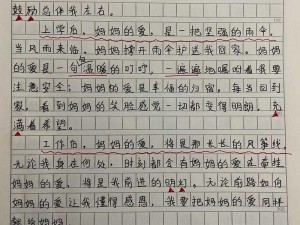 鼓励总伴我左右。
上学后,妈妈的爱,是一把坚强的雨伞,
当风雨来临,妈妈撑开雨伞护送我回家。妈妈
的爱是一句句温暖的叮咛,一遍遍地嘱咐着我要
注意安全;妈妈的爱是幸福的归宿,每当回到
家,看到妈妈的笑脸感觉一切都变得明朗,充
满着希望。
工作后,妈妈的爱,将是那长长的风筝线,
无论我身在何处,时刻都会有妈妈的爱在牵挂
妈妈的爱,将是我前进的明灯。无论前路如何
妈妈的爱让我懂得感恩,我要把妈妈的爱同样
献给妈妈